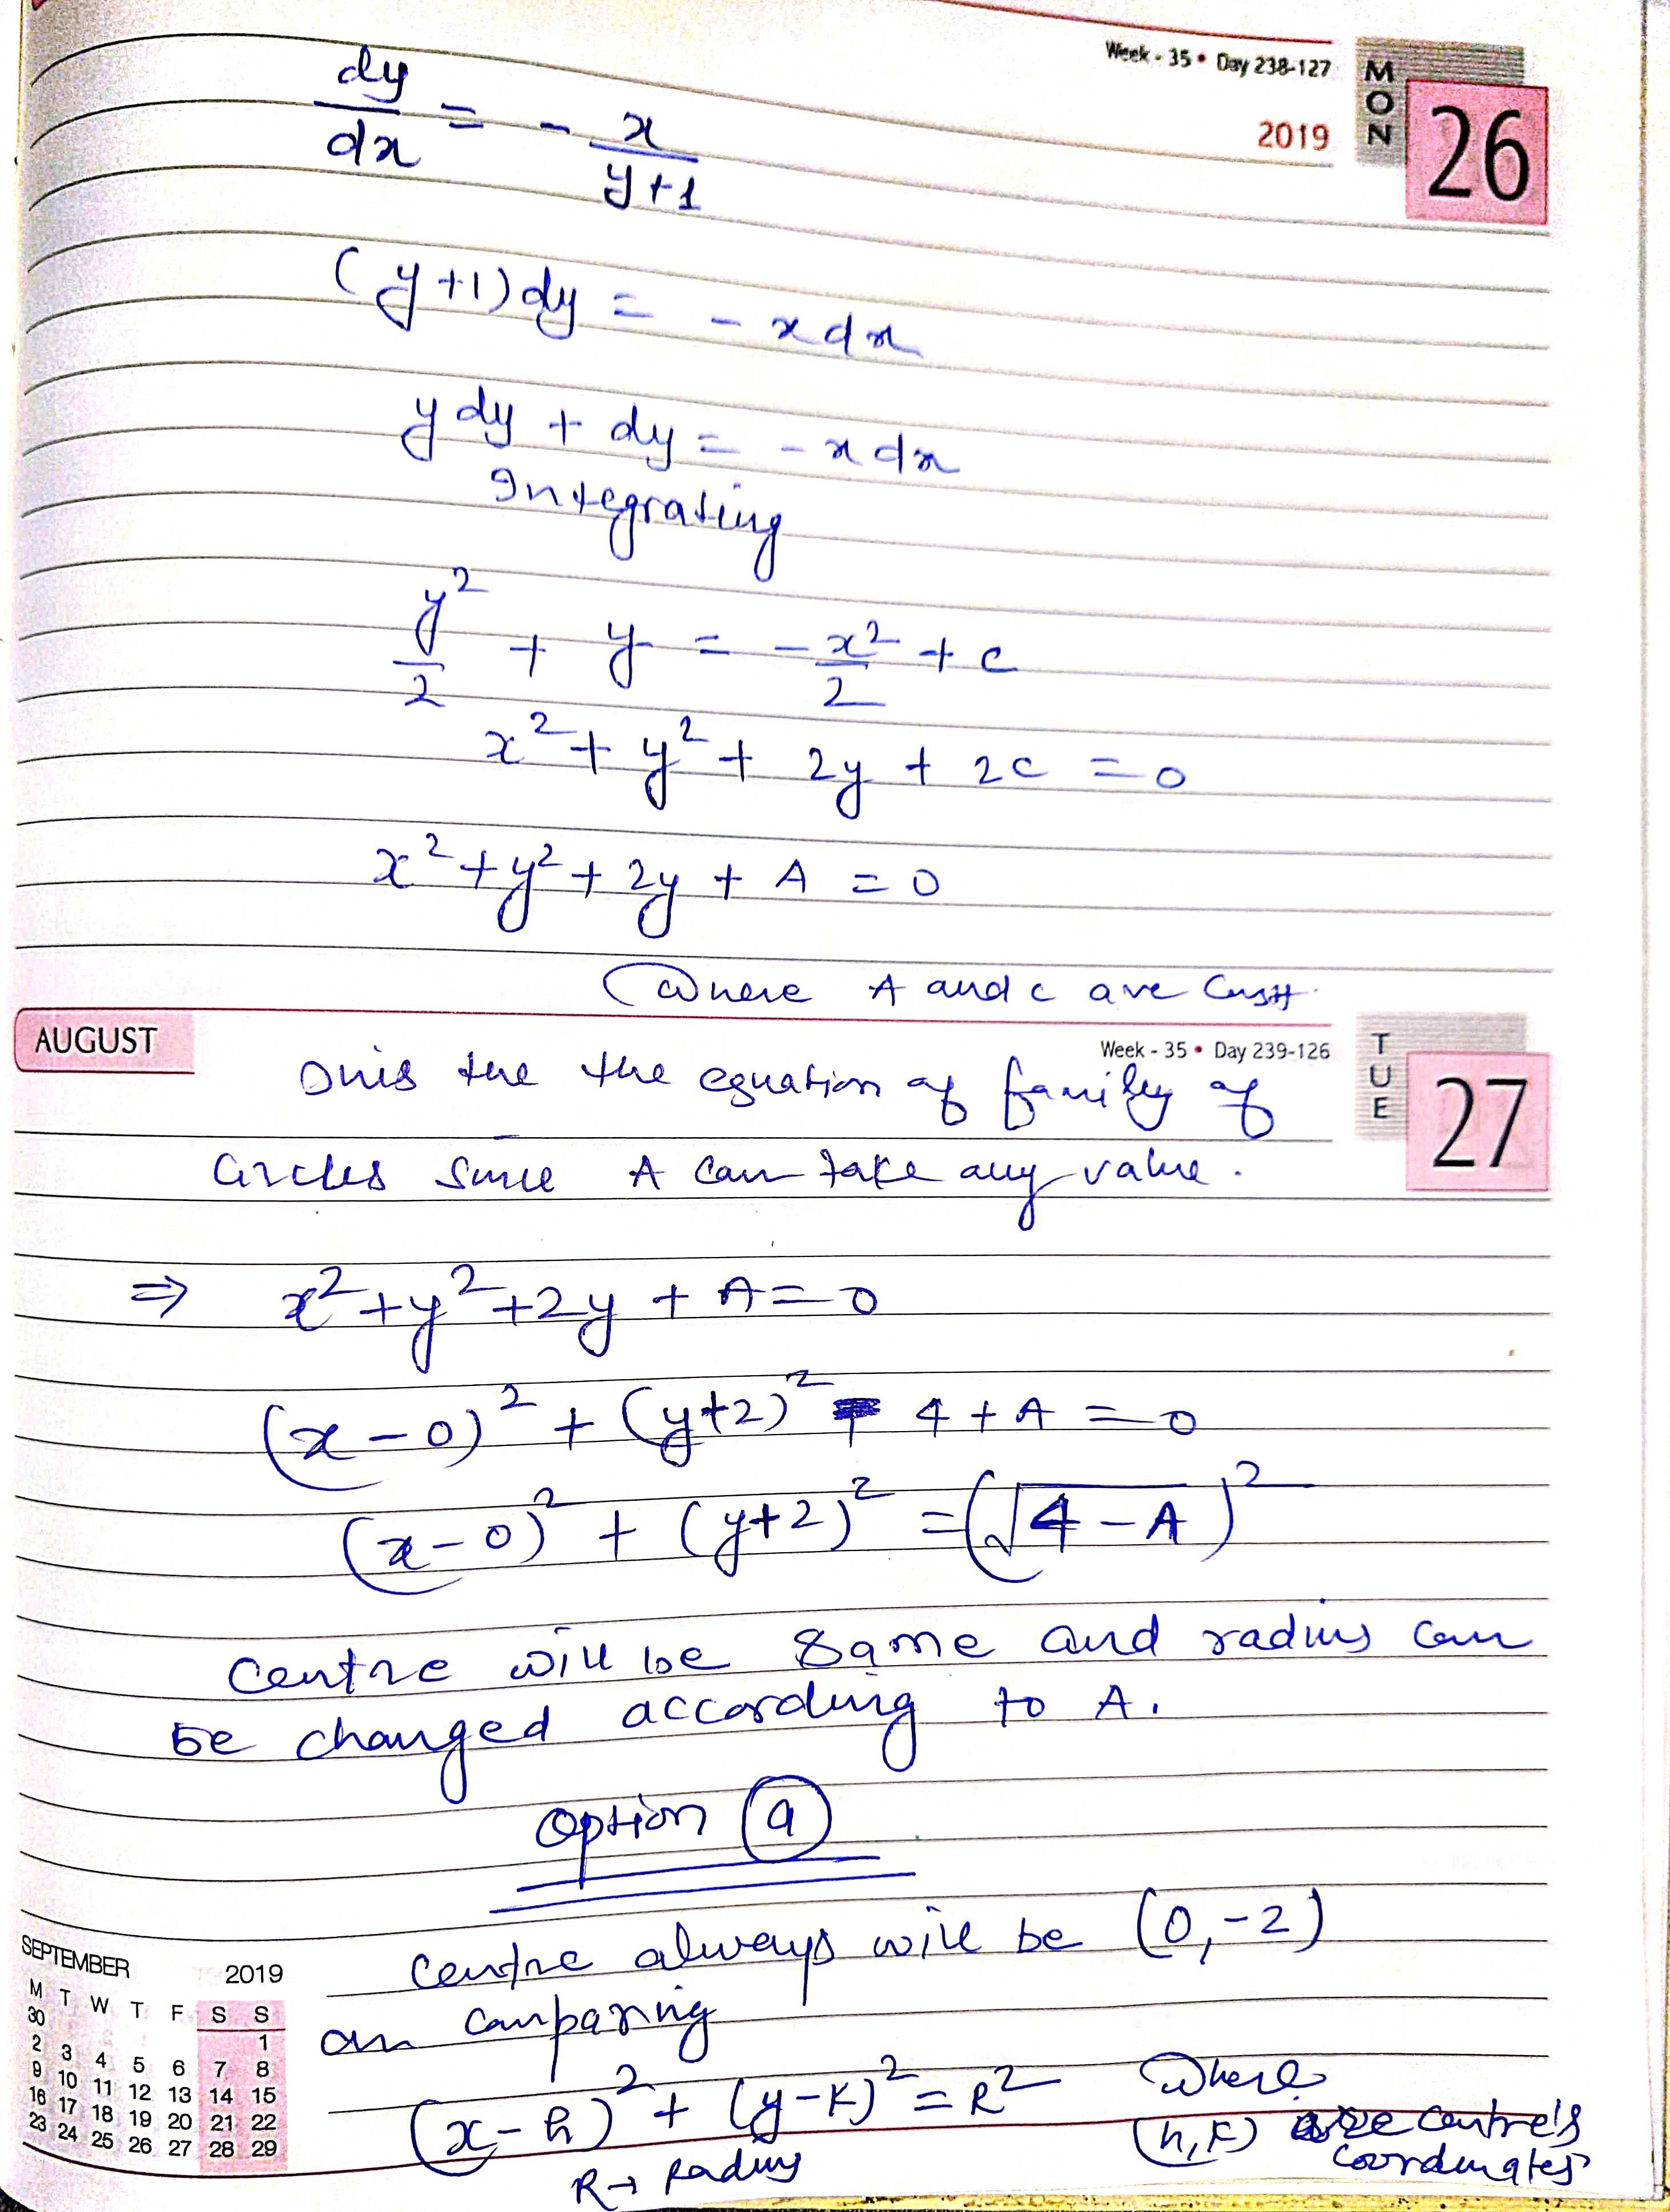 Week - 35 • Day 238-127
MON
26
2019
dy/dx = - x/(y+1)
(y+1)dy = - x dx
y dy + dy = - x dx
Integrating
y²/2 + y = - x²/2 + c
x² + y² + 2y + 2c = 0
x² + y² + 2y + A = 0
Where A and c are Const.
AUGUST
Week - 35 • Day 239-126
TUE
27
the the equation of family of
Circles Since A Can take any value.
⇒ x² + y² + 2y + A = 0
(x - 0)² + (y+2)² - 4 + A = 0
(x - 0)² + (y+2)² = (√4 - A)²
Centre will be Same and radius can
be changed according to A.
Option (a)
Centre always will be (0, -2)
on Comparing
(x - h)² + (y - k)² = R² Where
(h, k) are centre's
coordinates
R → Radius
SEPTEMBER 2019
M T W T F S S
30 1
2 3 4 5 6 7 8
9 10 11 12 13 14 15
16 17 18 19 20 21 22
23 24 25 26 27 28 29